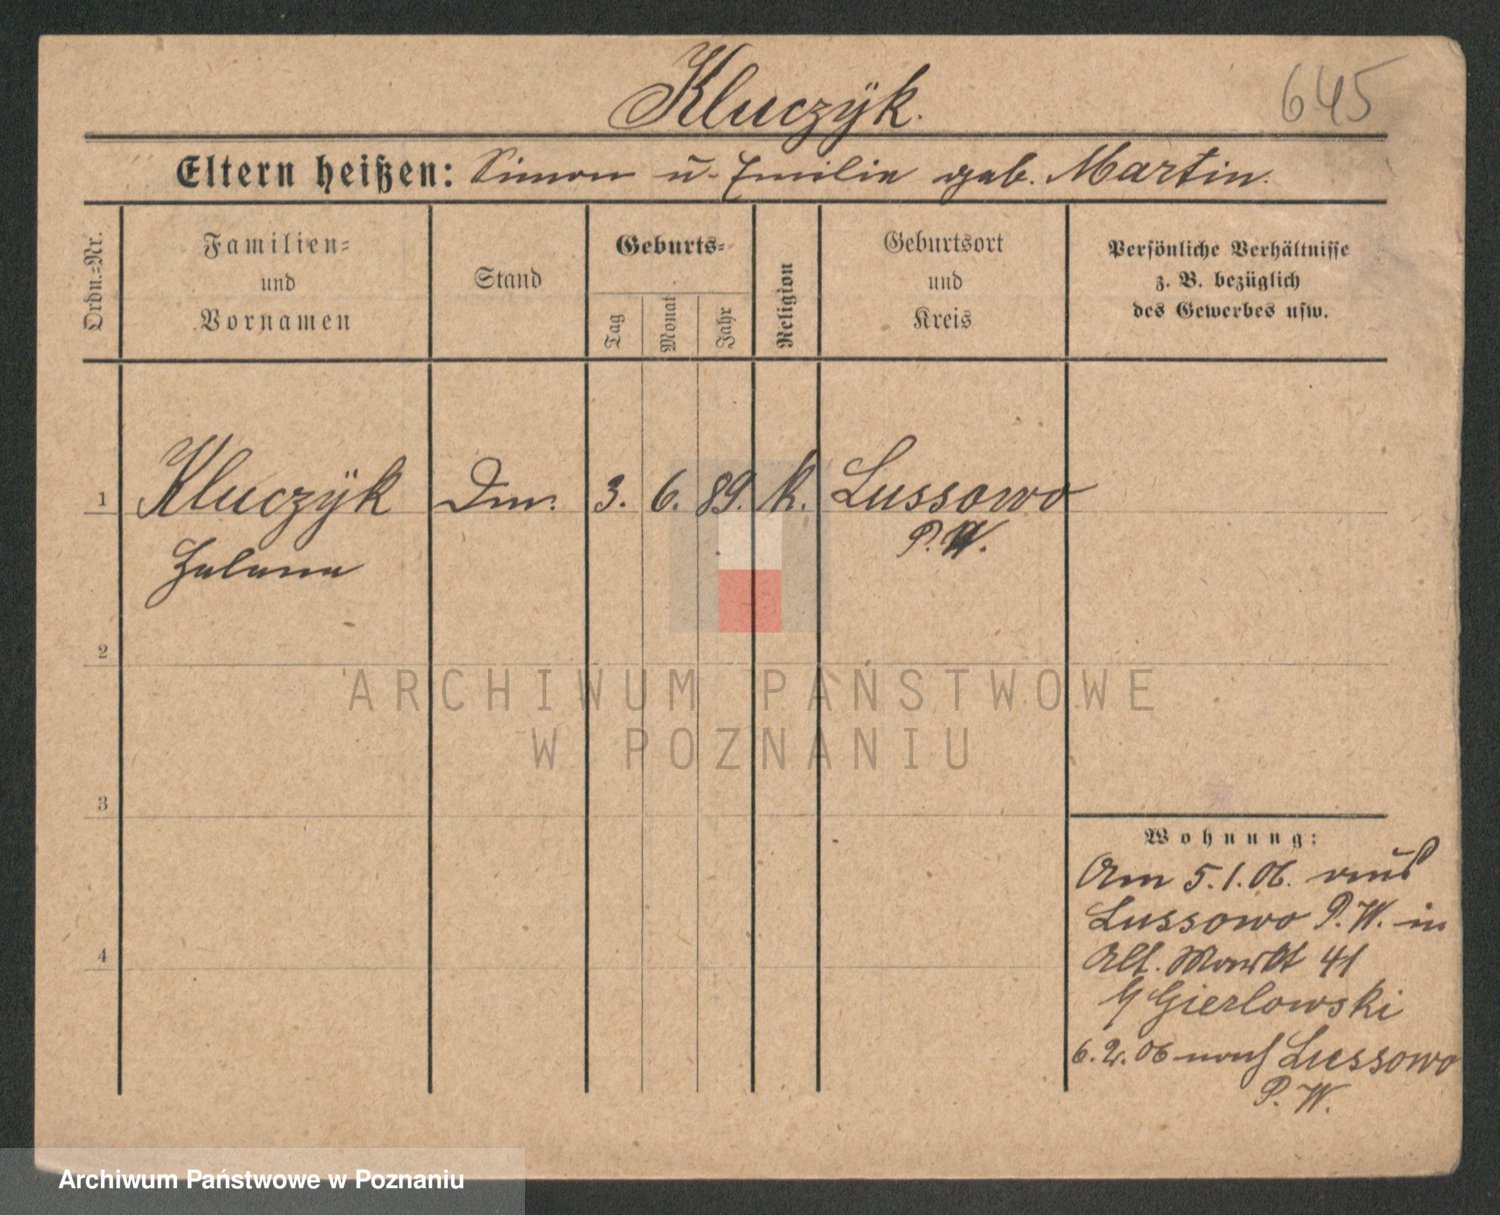 Kluczÿk.
645
Eltern heißen: Simon u. Emilie geb. Martin.
Ordn.-Nr.
Familien-
und
Vornamen
Stand
Geburts-
Tag
Monat
Jahr
Religion
Geburtsort
und
Kreis
Persönliche Verhältnisse
z. B. bezüglich
des Gewerbes usw.
1 Kluczÿk 3. 6. 89. k. Lussowo
Helena P. W.
2
ARCHIWUM PAŃSTWOWE
W POZNANIU
3
Wohnung:
Am 5.1.06. aus
Lussowo P. W. in
4
Alt. Markt 41
Gierlowski
6.2.06 nach Lussowo
P. W.
Archiwum Państwowe w Poznaniu